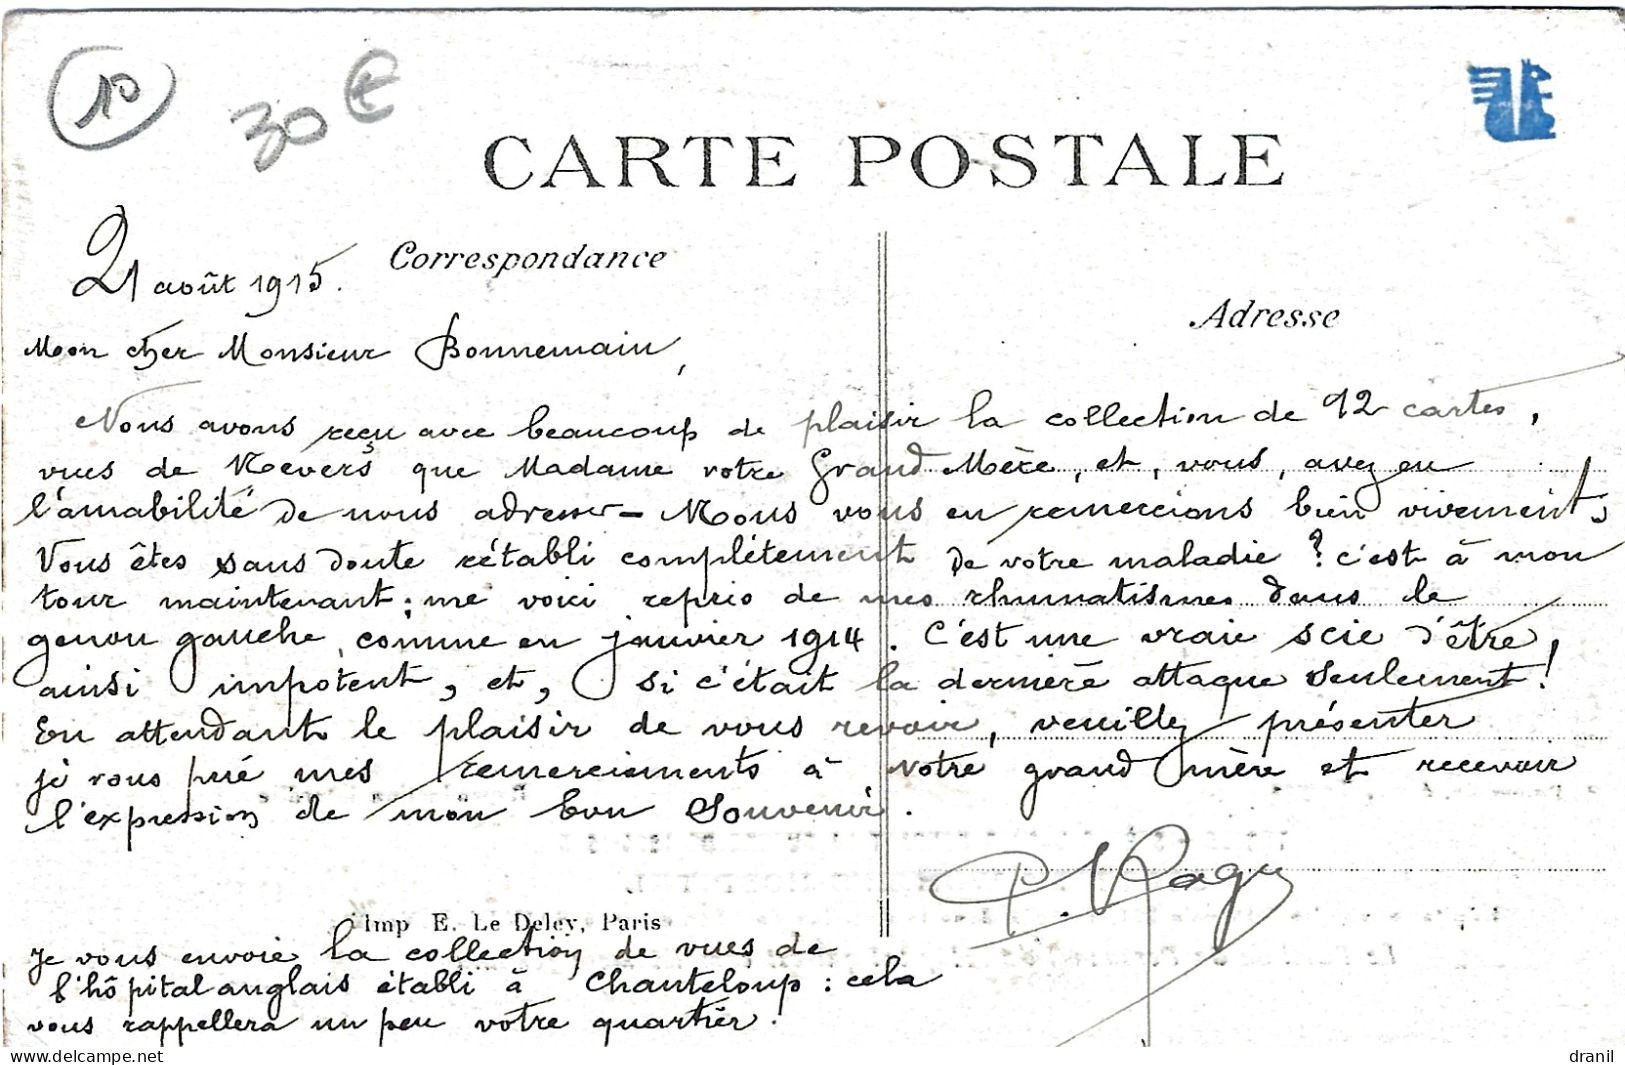 10
30€
CARTE POSTALE
Correspondance
Adresse
21 août 1915.
Mon cher Monsieur Bonnemain,
Nous avons reçu avec beaucoup de plaisir la collection de 12 cartes,
vues de Nevers que Madame votre Grand Mère, et, vous, avez eu
l'amabilité de nous adresser - Nous vous en remercions bien vivement.
Vous êtes sans doute rétabli complétement de votre maladie ? c'est à mon
tour maintenant ; me voici repris de mes rhumatismes dans le
genou gauche, comme en janvier 1914. C'est une vraie scie d'être,
ainsi impotent, et, si c'était la dernière attaque seulement !
En attendant le plaisir de vous revoir, veuillez présenter
je vous prie mes remerciements à votre grand mère et recevoir
l'expression de mon bon souvenir.
Imp E. Le Deley, Paris
Je vous envoie la collection de vues de
l'hôpital anglais établi à Chanteloup : cela
vous rappellera un peu votre quartier.
delcampe.com
dranil